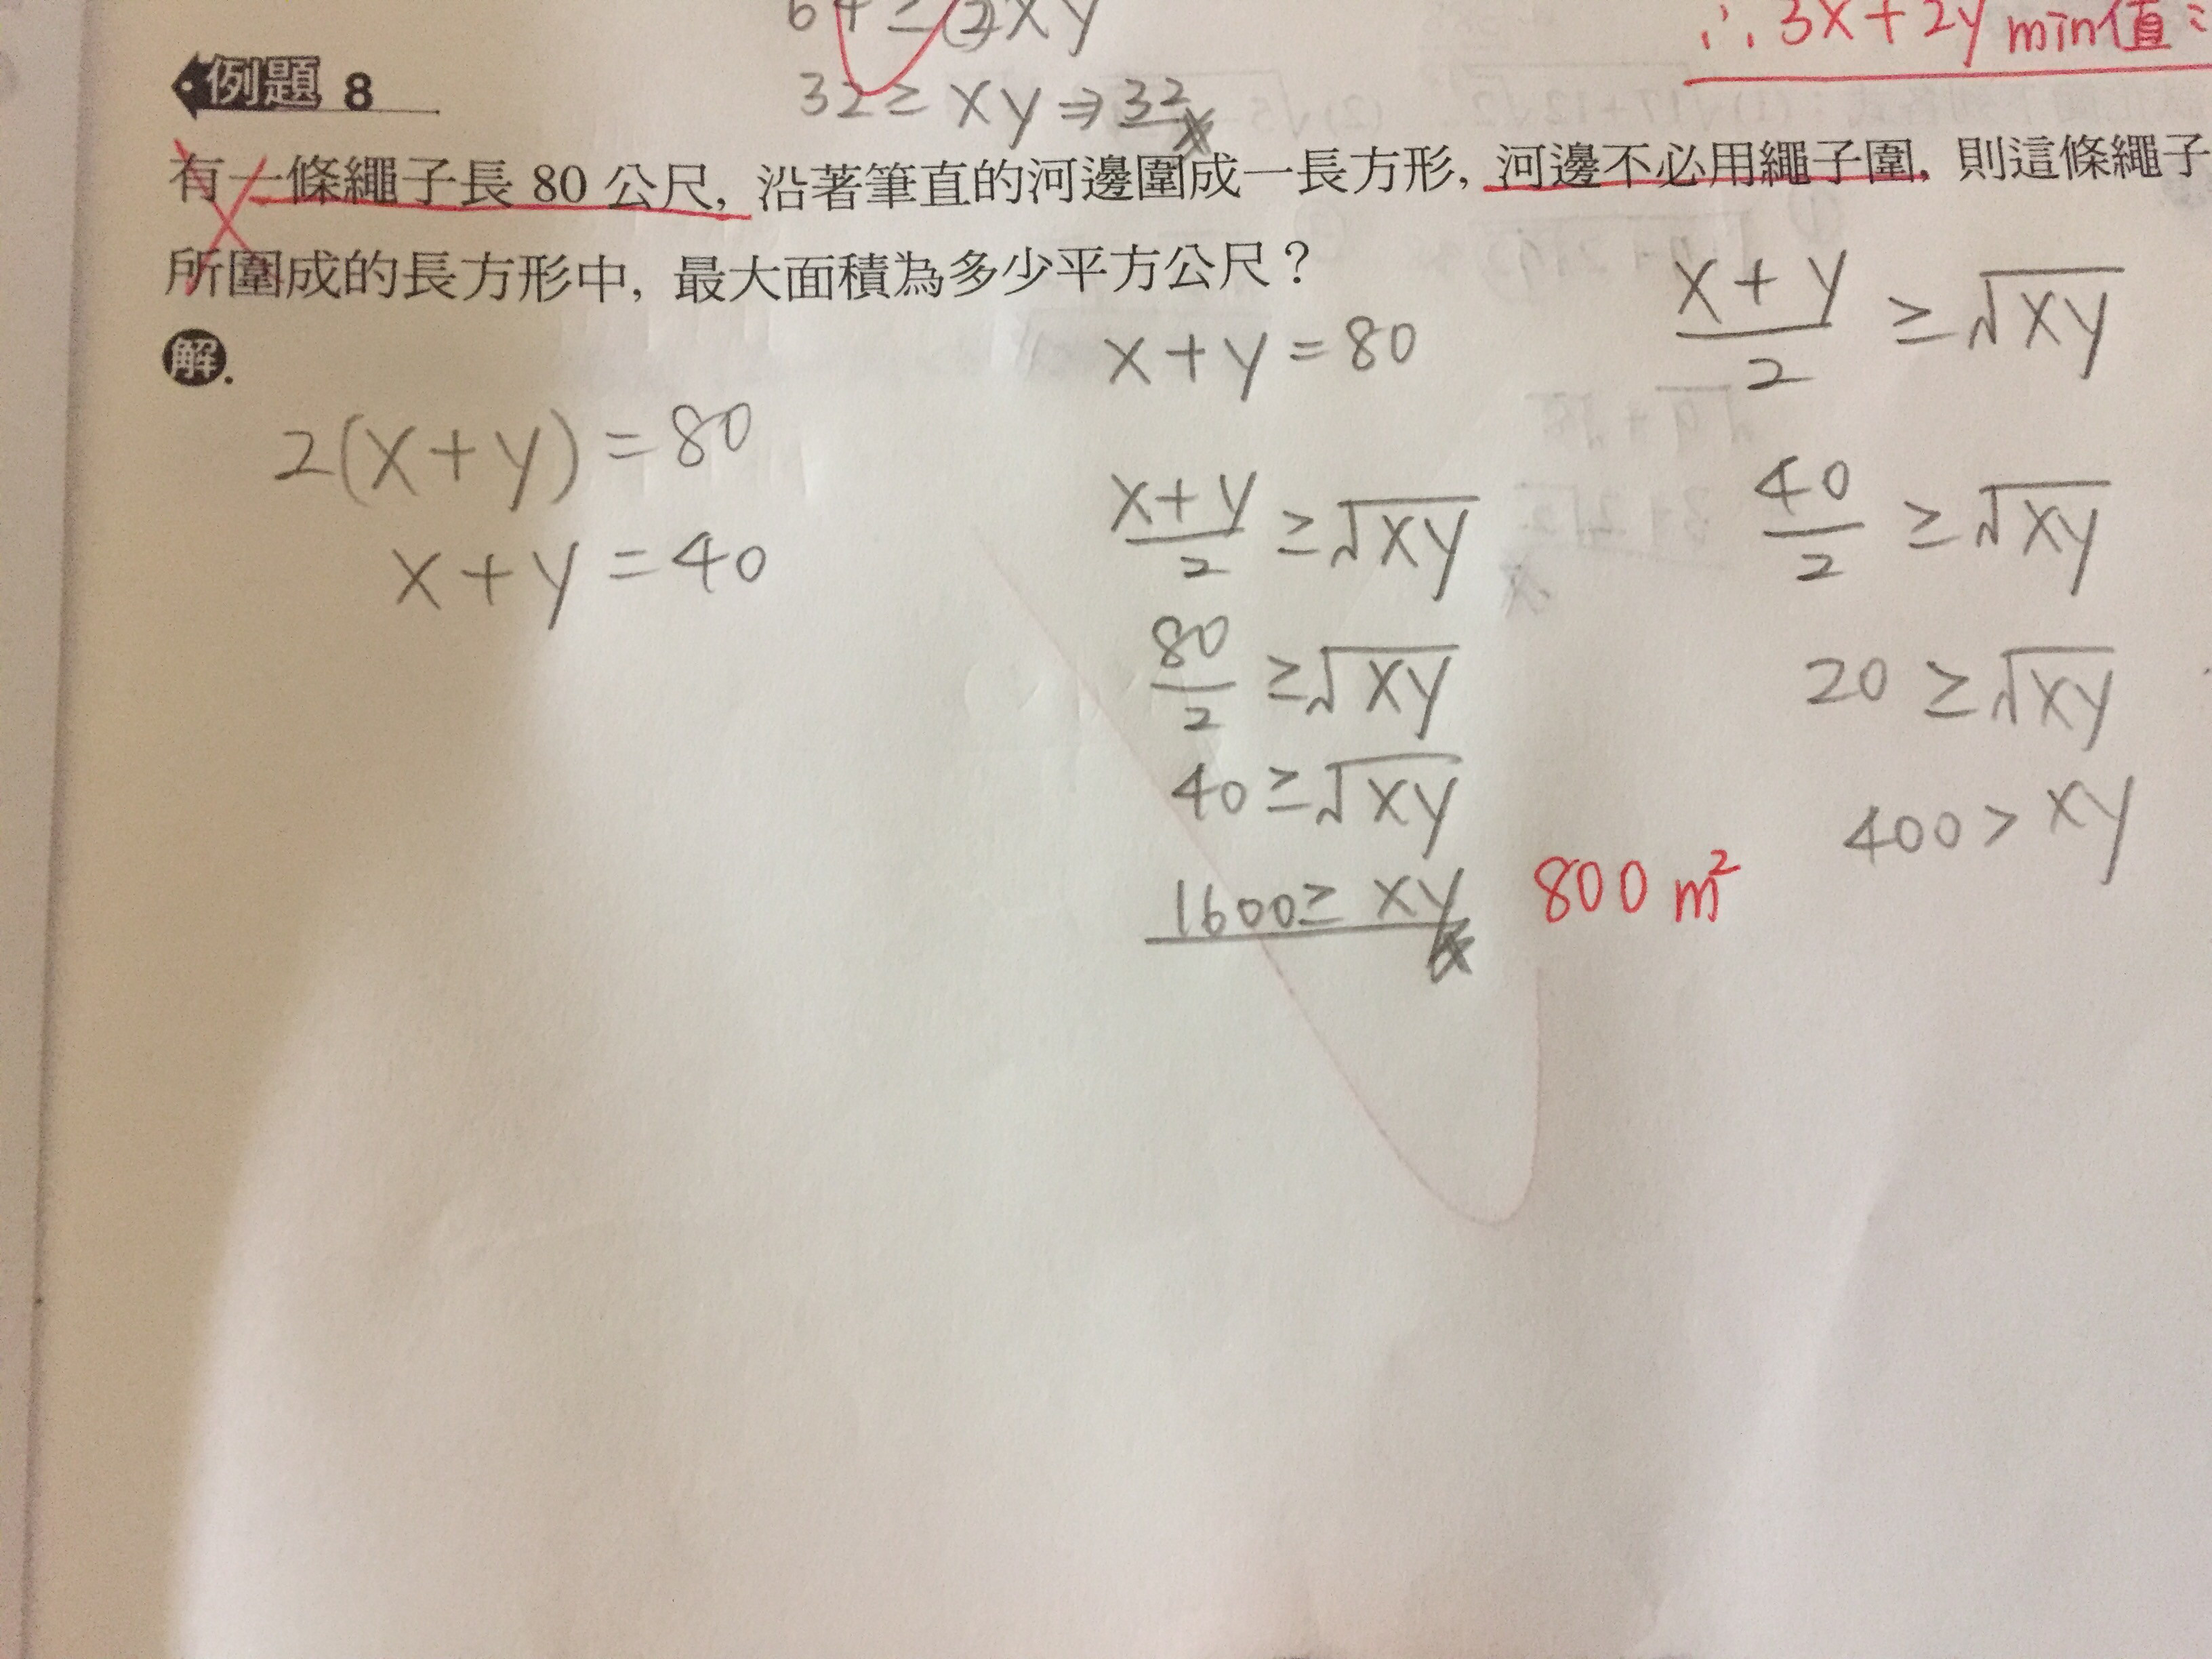 64 ≥ ②xy
∴ 3x+2y min值:
例題 8
32 ≥ xy ⇒ 32
有一條繩子長 80 公尺, 沿著筆直的河邊圍成一長方形, 河邊不必用繩子圍, 則這條繩子
所圍成的長方形中, 最大面積為多少平方公尺?
解.
2(x+y) = 80
x+y = 40
x+y = 80
x+y/2 ≥ √xy
80/2 ≥ √xy
40 ≥ √xy
1600 ≥ xy
800 m²
x+y/2 ≥ √xy
40/2 ≥ √xy
20 ≥ √xy
400 > xy